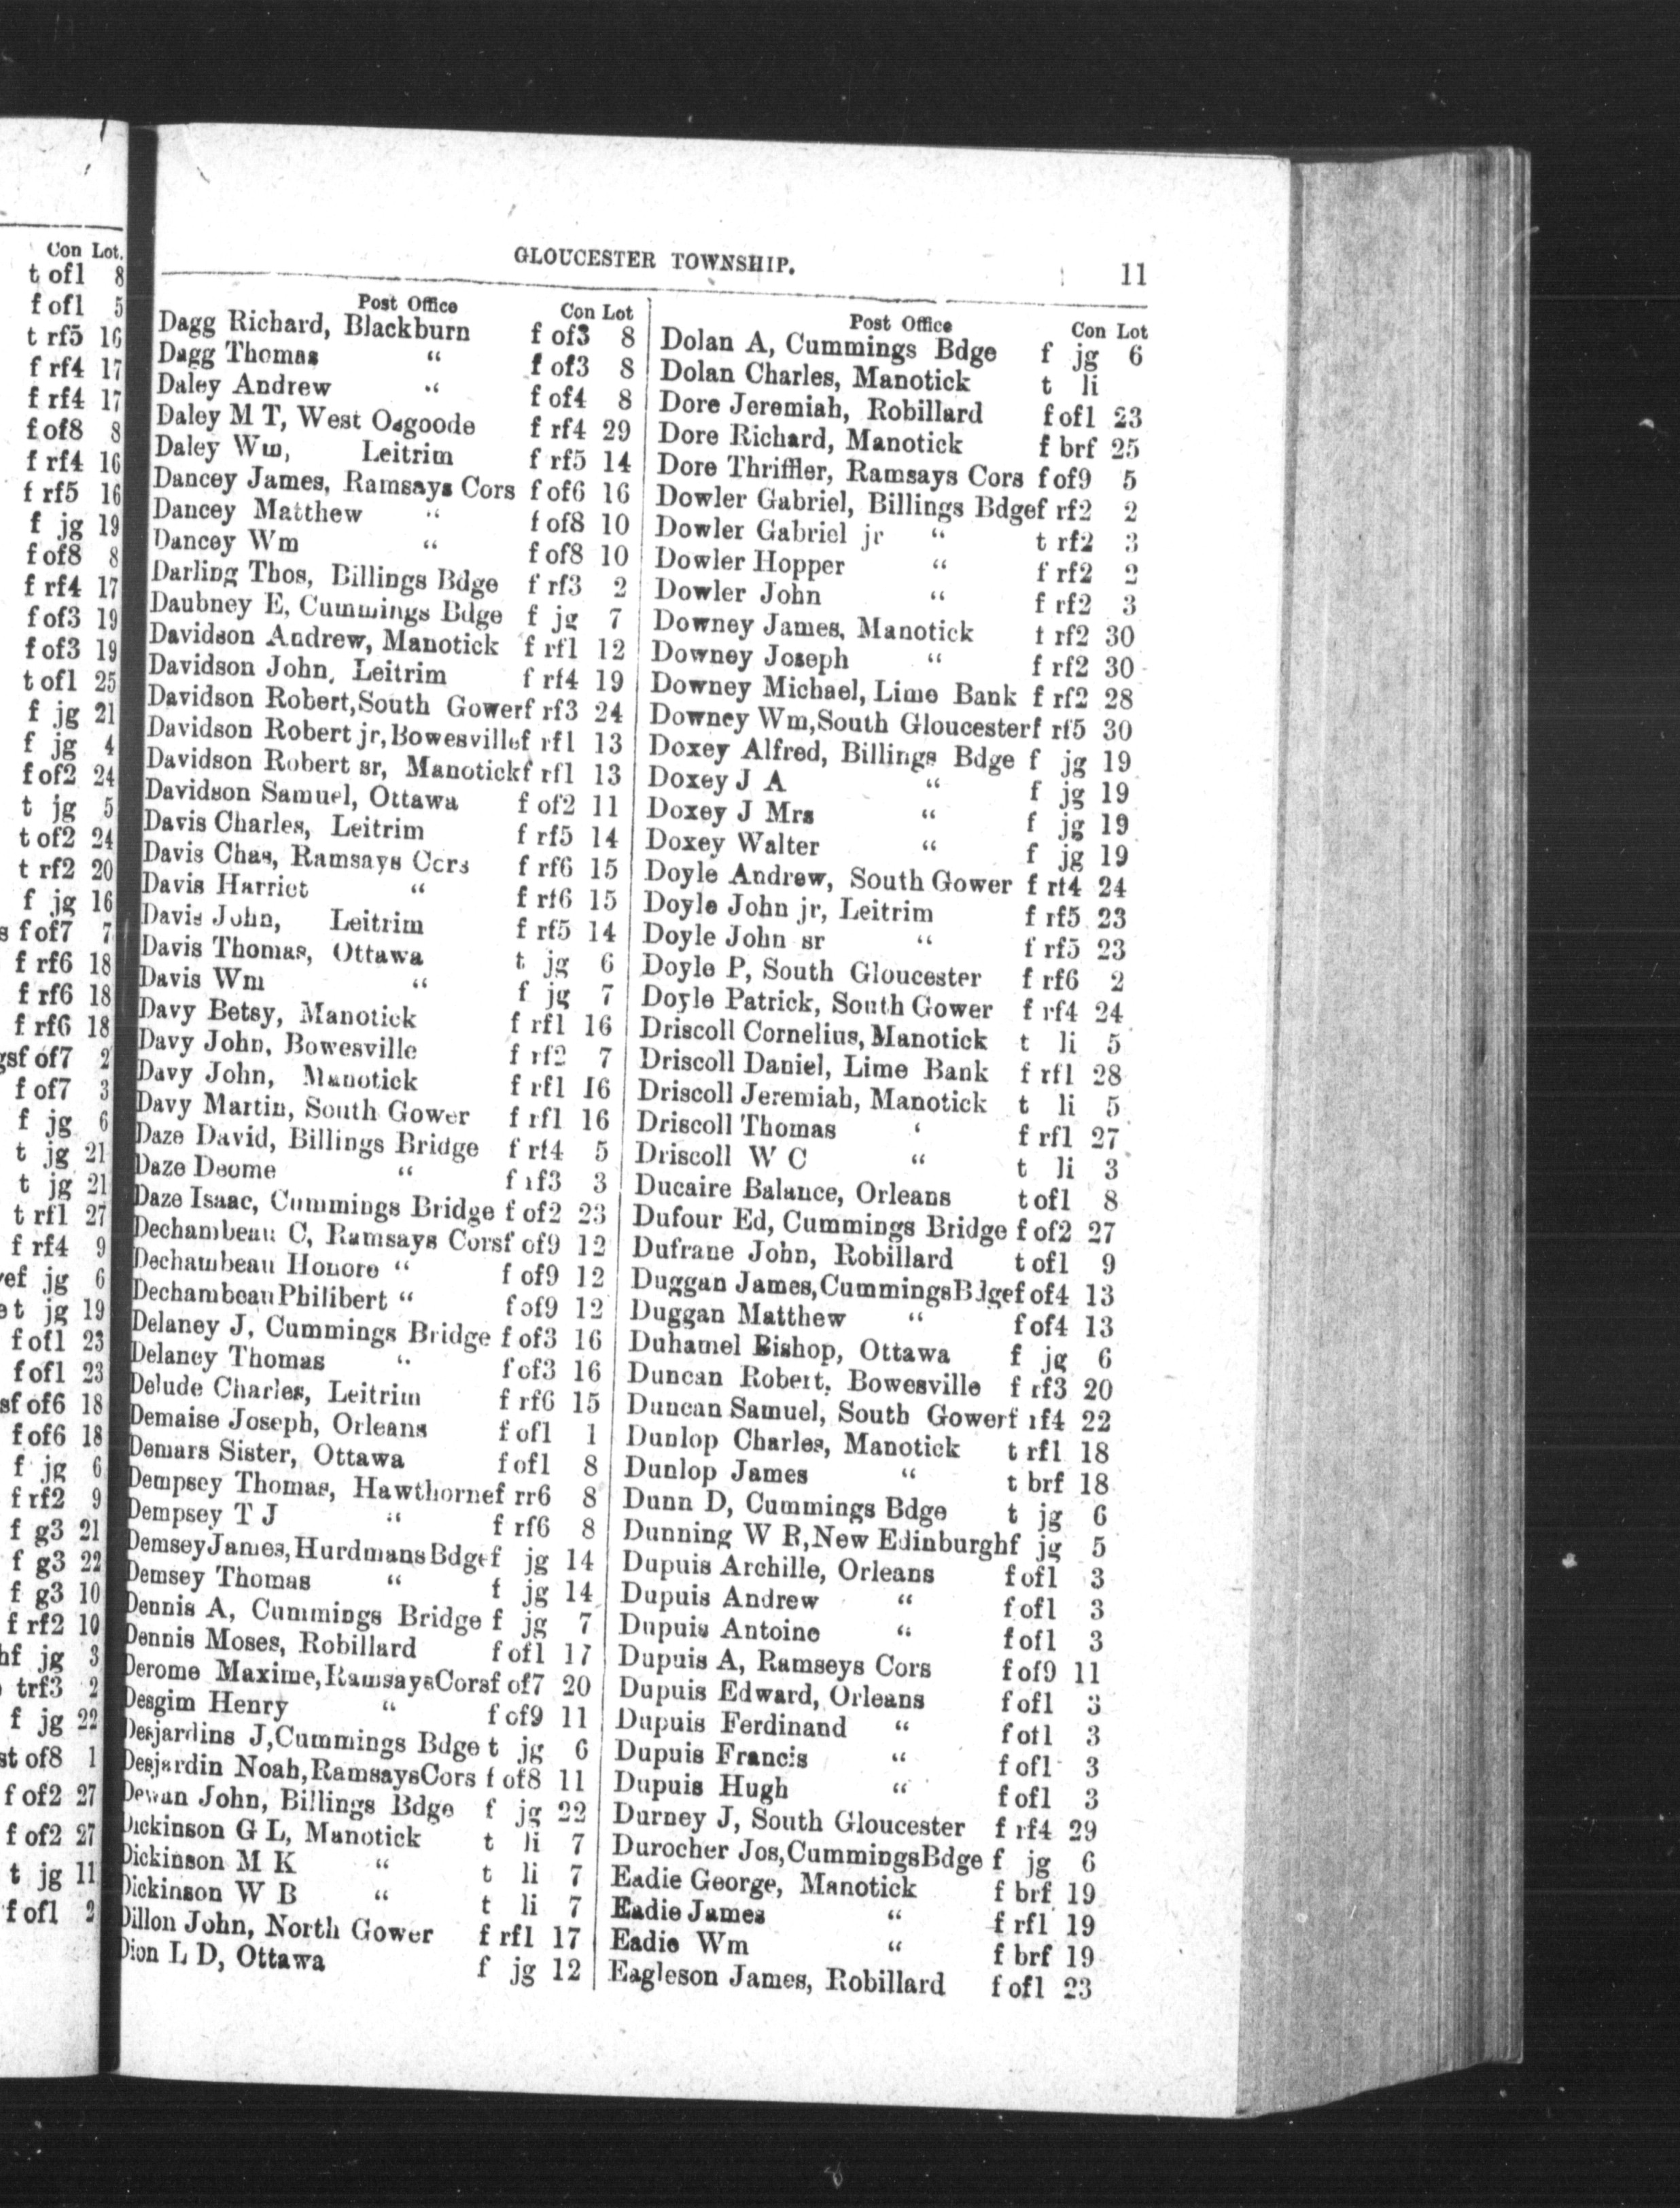 Con Lot.
t of1 8
f of1 5
t rf5 16
f rf4 17
f rf4 17
f of8 8
f rf4 16
f rf5 16
f jg 19
f of8 8
f rf4 17
f of3 19
f of3 19
t of1 25
f jg 21
f jg 4
f of2 24
t jg 5
t of2 24
t rf2 20
f jg 16
s f of7 7
f rf6 18
f rf6 18
f rf6 18
gsf of7 2
f of7 3
f jg 6
t jg 21
t jg 21
t rf1 27
f rf4 9
ef jg 6
et jg 19
f of1 23
f of1 23
sf of6 18
f of6 18
f jg 6
f rf2 9
f g3 21
f g3 22
f g3 10
f rf2 10
hf jg 3
trf3 2
f jg 22
st of8 1
f of2 27
f of2 27
t jg 11
f of1 2
GLOUCESTER TOWNSHIP. 11
Post Office Con Lot
Dagg Richard, Blackburn f of3 8
Dagg Thomas “ f of3 8
Daley Andrew “ f of4 8
Daley M T, West Osgoode f rf4 29
Daley Wm, Leitrim f rf5 14
Dancey James, Ramsays Cors f of6 16
Dancey Matthew “ f of8 10
Dancey Wm “ f of8 10
Darling Thos, Billings Bdge f rf3 2
Daubney E, Cummings Bdge f jg 7
Davidson Andrew, Manotick f rf1 12
Davidson John, Leitrim f rf4 19
Davidson Robert, South Gowerf rf3 24
Davidson Robert jr, Bowesvillef rf1 13
Davidson Robert sr, Manotickf rf1 13
Davidson Samuel, Ottawa f of2 11
Davis Charles, Leitrim f rf5 14
Davis Chas, Ramsays Cors f rf6 15
Davis Harriet “ f rf6 15
Davis John, Leitrim f rf5 14
Davis Thomas, Ottawa t jg 6
Davis Wm “ f jg 7
Davy Betsy, Manotick f rf1 16
Davy John, Bowesville f rf2 7
Davy John, Manotick f rf1 16
Davy Martin, South Gower f rf1 16
Daze David, Billings Bridge f rf4 5
Daze Deome “ f rf3 3
Daze Isaac, Cummings Bridge f of2 23
Dechambeau C, Ramsays Corsf of9 12
Dechambeau Honore “ f of9 12
Dechambeau Philibert “ f of9 12
Delaney J, Cummings Bridge f of3 16
Delaney Thomas “ f of3 16
Delude Charles, Leitrim f rf6 15
Demaise Joseph, Orleans f of1 1
Demars Sister, Ottawa f of1 8
Dempsey Thomas, Hawthornef rr6 8
Dempsey T J “ f rf6 8
Demsey James, Hurdmans Bdgef jg 14
Demsey Thomas “ f jg 14
Dennis A, Cummings Bridge f jg 7
Dennis Moses, Robillard f of1 17
Derome Maxime, Ramsays Corsf of7 20
Desgim Henry “ f of9 11
Desjardins J, Cummings Bdge t jg 6
Desjardin Noah, Ramsays Cors f of8 11
Dewan John, Billings Bdge f jg 22
Dickinson G L, Manotick t li 7
Dickinson M K “ t li 7
Dickinson W B “ t li 7
Dillon John, North Gower f rf1 17
Dion L D, Ottawa f jg 12
Post Office Con Lot
Dolan A, Cummings Bdge f jg 6
Dolan Charles, Manotick t li
Dore Jeremiah, Robillard f of1 23
Dore Richard, Manotick f brf 25
Dore Thriffler, Ramsays Cors f of9 5
Dowler Gabriel, Billings Bdgef rf2 2
Dowler Gabriel jr “ t rf2 3
Dowler Hopper “ f rf2 2
Dowler John “ f rf2 3
Downey James, Manotick t rf2 30
Downey Joseph “ f rf2 30
Downey Michael, Lime Bank f rf2 28
Downey Wm, South Gloucesterf rf5 30
Doxey Alfred, Billings Bdge f jg 19
Doxey J A “ f jg 19
Doxey J Mrs “ f jg 19
Doxey Walter “ f jg 19
Doyle Andrew, South Gower f rf4 24
Doyle John jr, Leitrim f rf5 23
Doyle John sr “ f rf5 23
Doyle P, South Gloucester f rf6 2
Doyle Patrick, South Gower f rf4 24
Driscoll Cornelius, Manotick t li 5
Driscoll Daniel, Lime Bank f rf1 28
Driscoll Jeremiah, Manotick t li 5
Driscoll Thomas ‘ f rf1 27
Driscoll W C “ t li 3
Ducaire Balance, Orleans t of1 8
Dufour Ed, Cummings Bridge f of2 27
Dufrane John, Robillard t of1 9
Duggan James, Cummings Bdgef of4 13
Duggan Matthew “ f of4 13
Duhamel Bishop, Ottawa f jg 6
Duncan Robert, Bowesville f rf3 20
Duncan Samuel, South Gowerf rf4 22
Dunlop Charles, Manotick t rf1 18
Dunlop James “ t brf 18
Dunn D, Cummings Bdge t jg 6
Dunning W R, New Edinburghf jg 5
Dupuis Archille, Orleans f of1 3
Dupuis Andrew “ f of1 3
Dupuis Antoine “ f of1 3
Dupuis A, Ramseys Cors f of9 11
Dupuis Edward, Orleans f of1 3
Dupuis Ferdinand “ f of1 3
Dupuis Francis “ f of1 3
Dupuis Hugh “ f of1 3
Durney J, South Gloucester f rf4 29
Durocher Jos, Cummings Bdge f jg 6
Eadie George, Manotick f brf 19
Eadie James “ f rf1 19
Eadie Wm “ f brf 19
Eagleson James, Robillard f of1 23